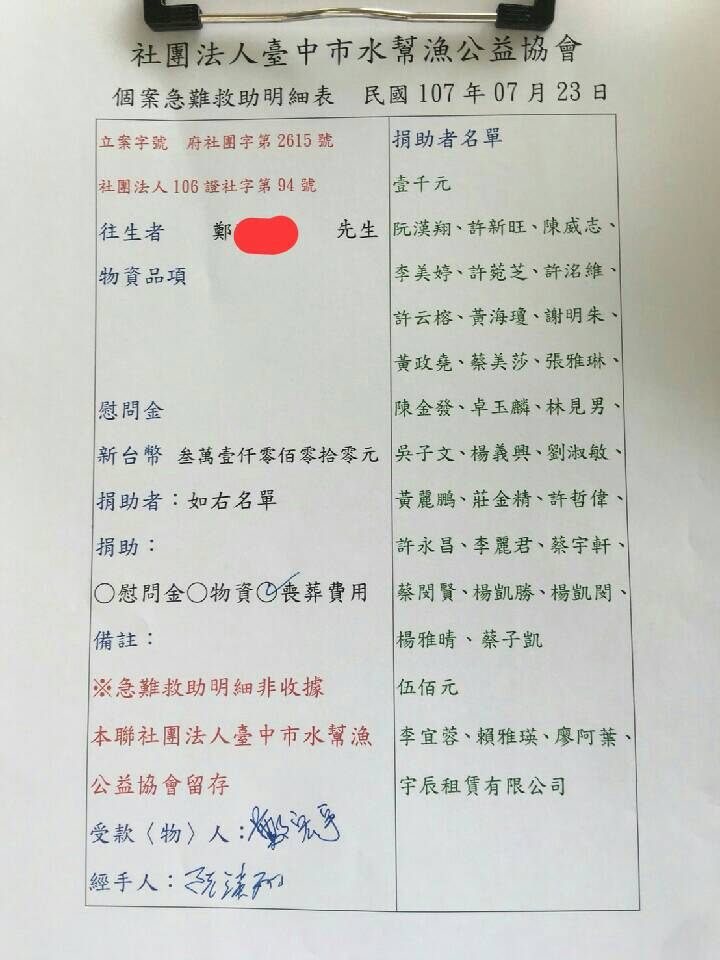 社團法人臺中市水幫漁公益協會
個案急難救助明細表 民國 107 年 07 月 23 日
立案字號 府社團字第 2615 號
社團法人 106 證社字第 94 號
往生者 鄭 先生
物資品項
慰問金
新台幣 叁萬壹仟零佰零拾零元
捐助者：如右名單
捐助：
○慰問金○物資○喪葬費用
備註：
※急難救助明細非收據
本聯社團法人臺中市水幫漁
公益協會留存
受款〈物〉人：
經手人：
捐助者名單
壹千元
阮漢翔、許新旺、陳威志、
李美婷、許菀芝、許洺維、
許云榕、黃海瓊、謝明朱、
黃政堯、蔡美莎、張雅琳、
陳金發、卓玉麟、林見男、
吳子文、楊義興、劉淑敏、
黃麗鵬、莊金精、許哲偉、
許永昌、李麗君、蔡宇軒、
蔡閔賢、楊凱勝、楊凱閔、
楊雅晴、蔡子凱
伍佰元
李宜蓉、賴雅瑛、廖阿葉、
宇辰租賃有限公司